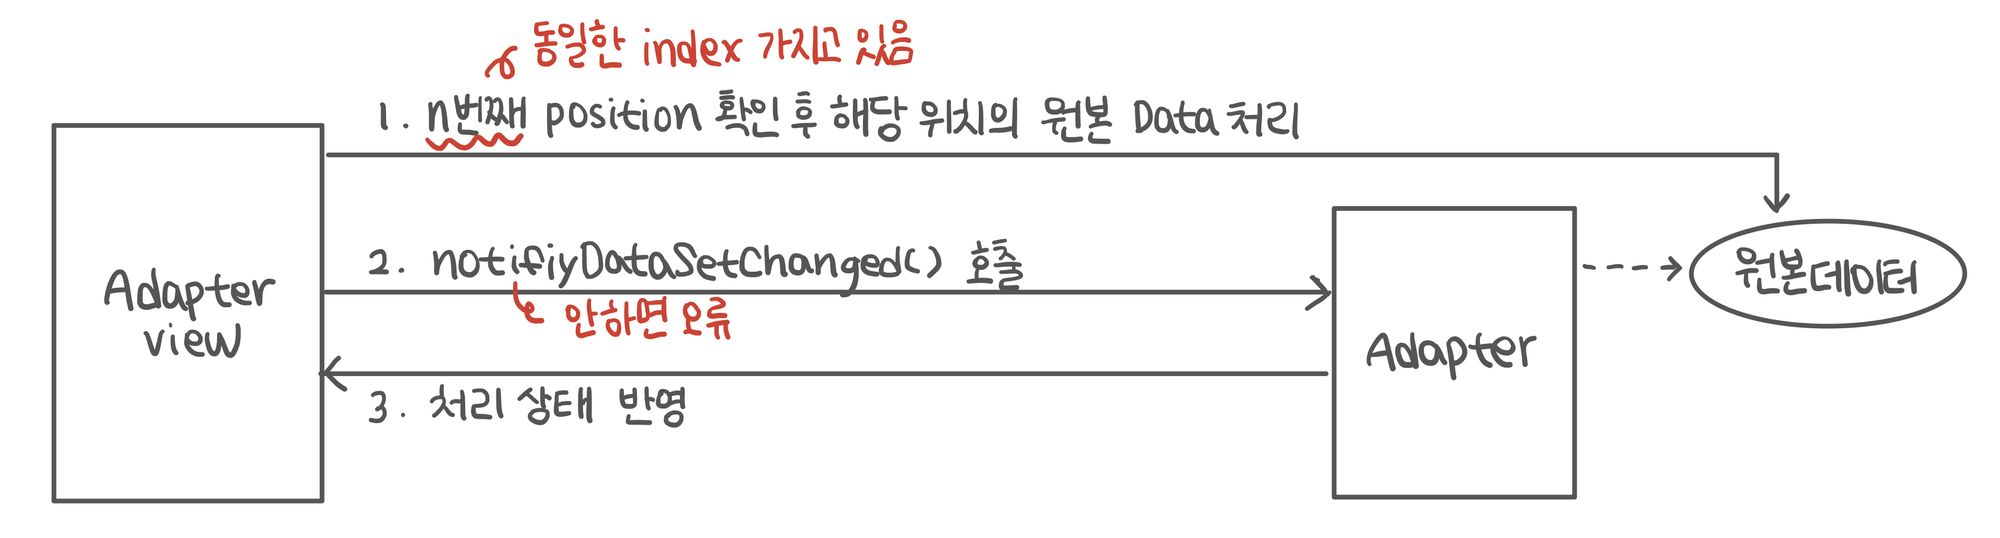 동일한 index 가지고 있음
1. n번째 position 확인 후 해당 위치의 원본 Data 처리
Adapter
view
2. notifiyDataSetChanged() 호출
안하면 오류
3. 처리 상태 반영
Adapter
원본데이터